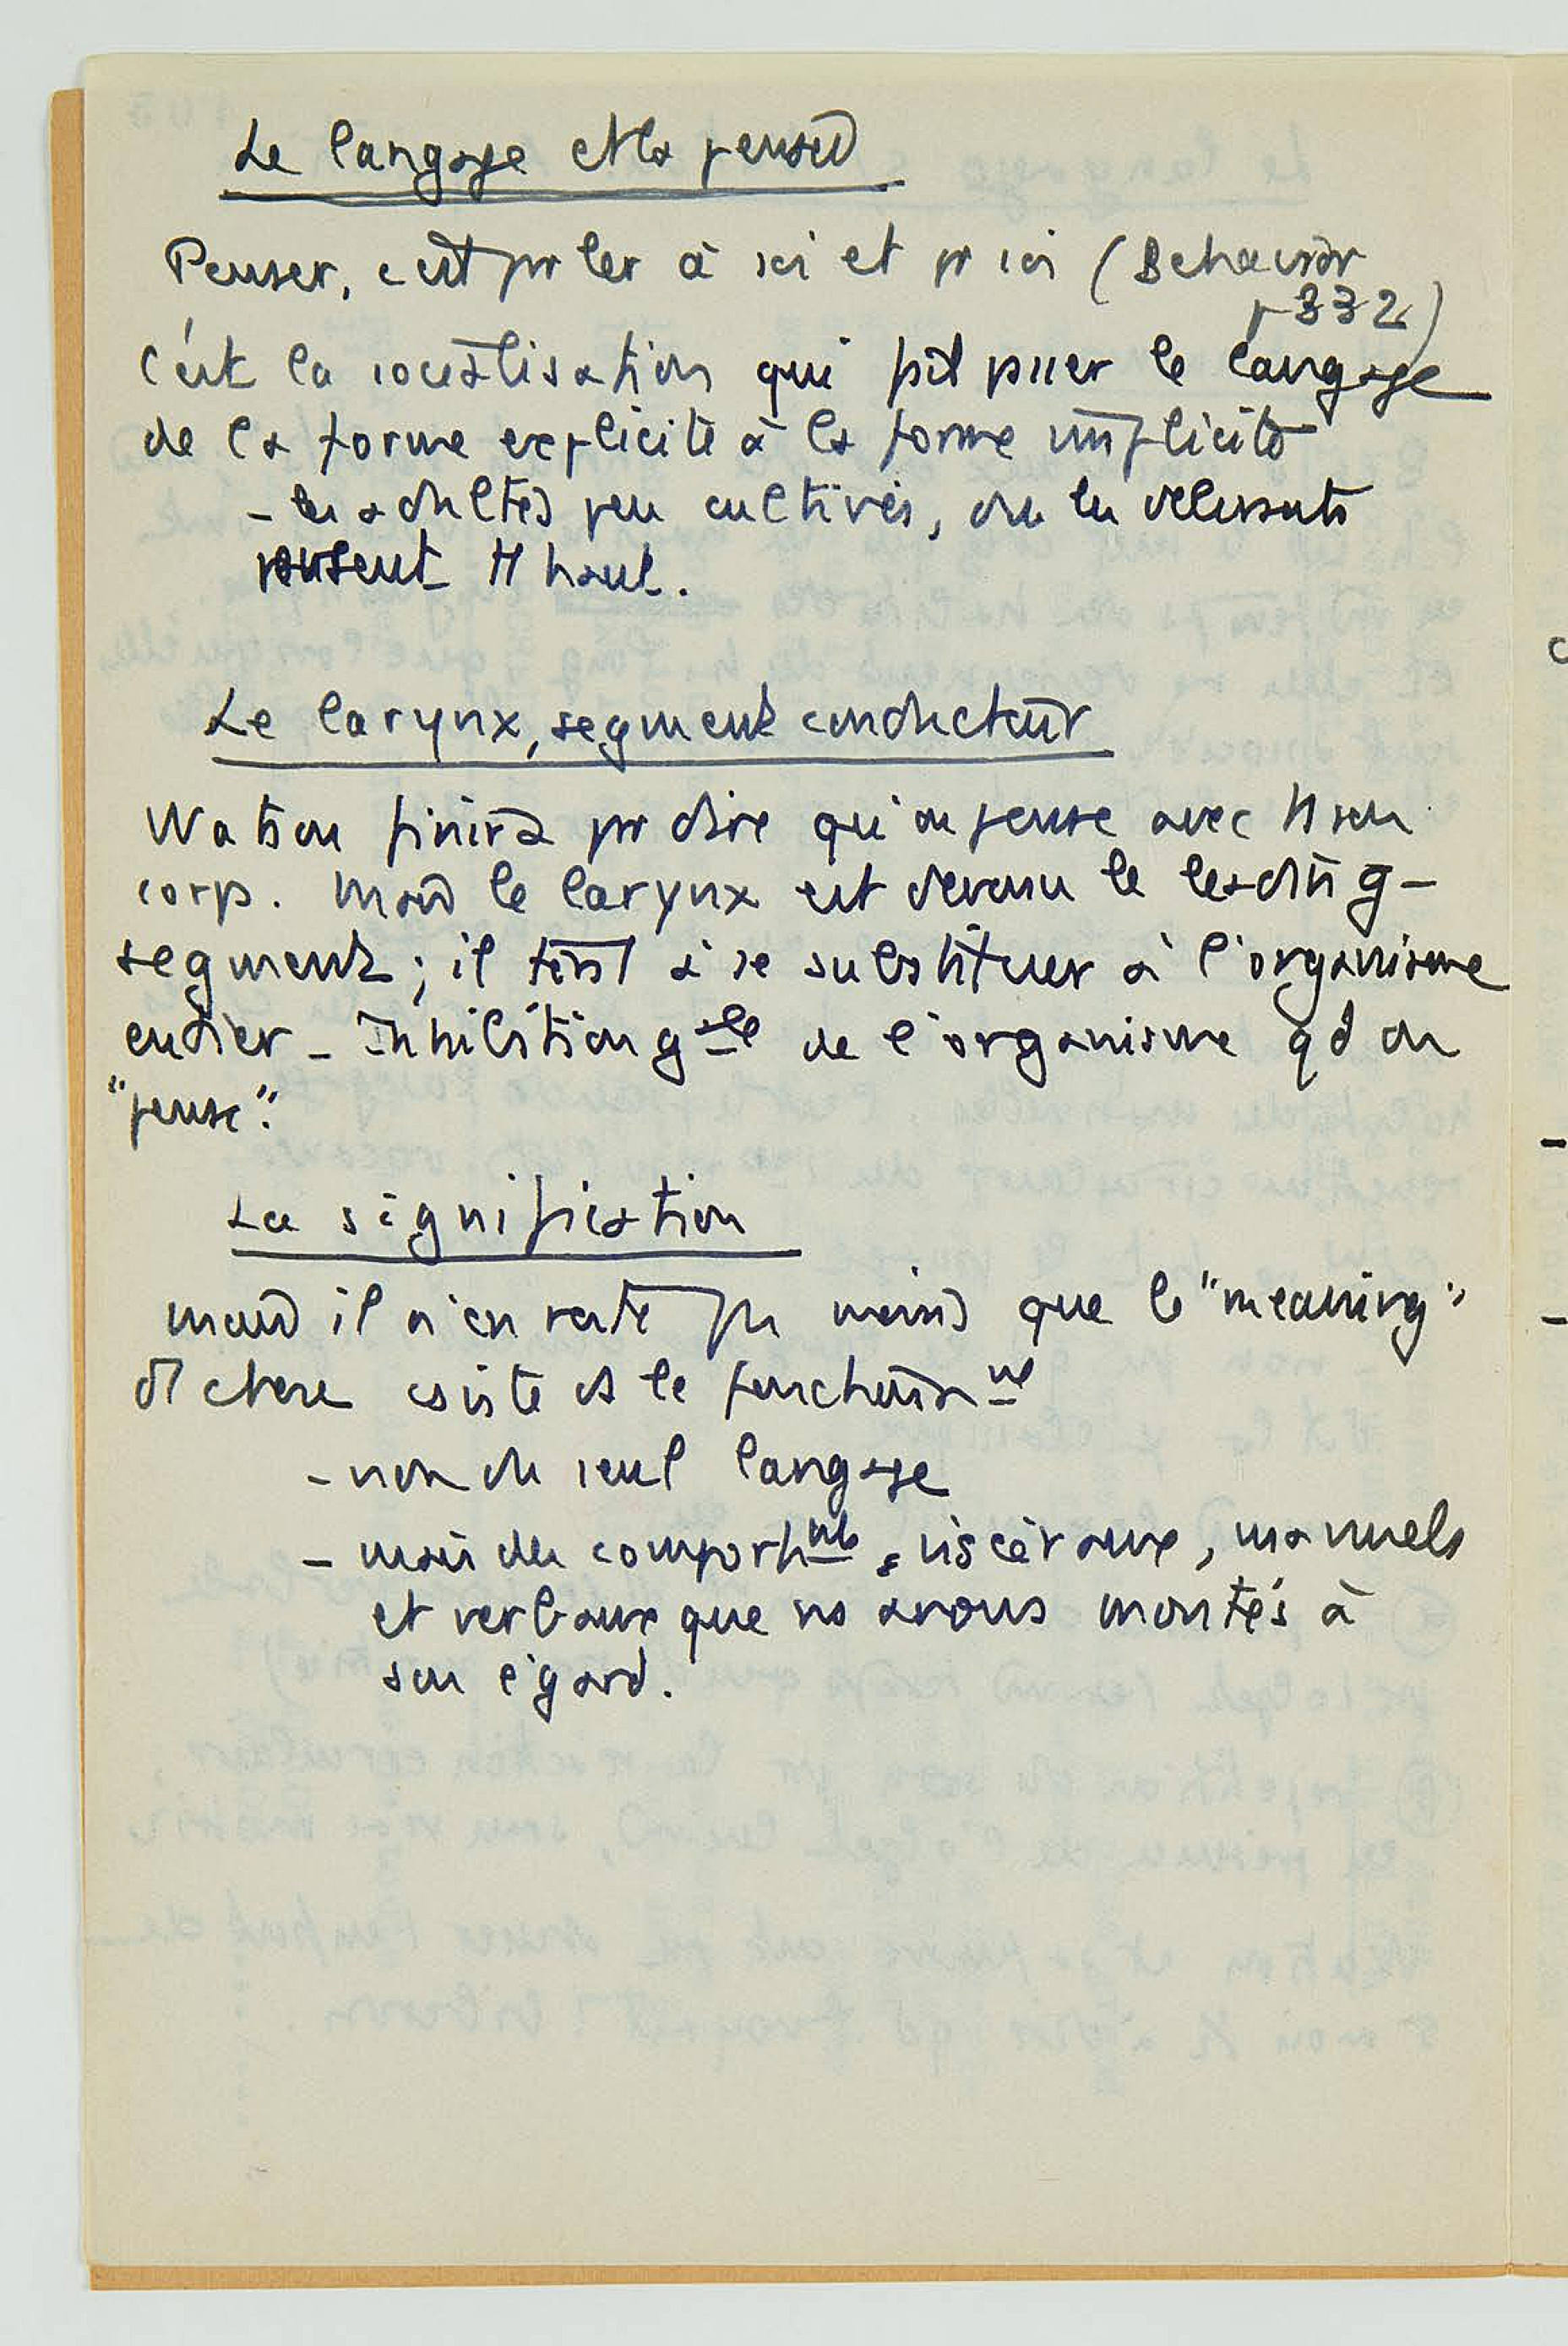 Le langage et la pensée
Penser, c'est parler à soi et pr soi (Behavior
p 332)
C'est la socialisation qui fait passer le langage
de la forme explicite à la forme implicite
- les adultes peu cultivés, ou les vieillards
pensent tt haut.
Le larynx, segment conducteur
Watson finira pr dire qu'on pense avec tt son
corps. Mais le larynx est devenu le leading-
segment ; il tend à se substituer à l'organisme
entier - Inhibition gale de l'organisme qd on
"pense".
La signification
mais il n'en reste pas moins que le "meaning"
d'1 chose existe ds le fonctionnt
- non du seul langage
- mais des comportnts viscéraux, manuels
et verbaux que ns avons montés à
son égard.